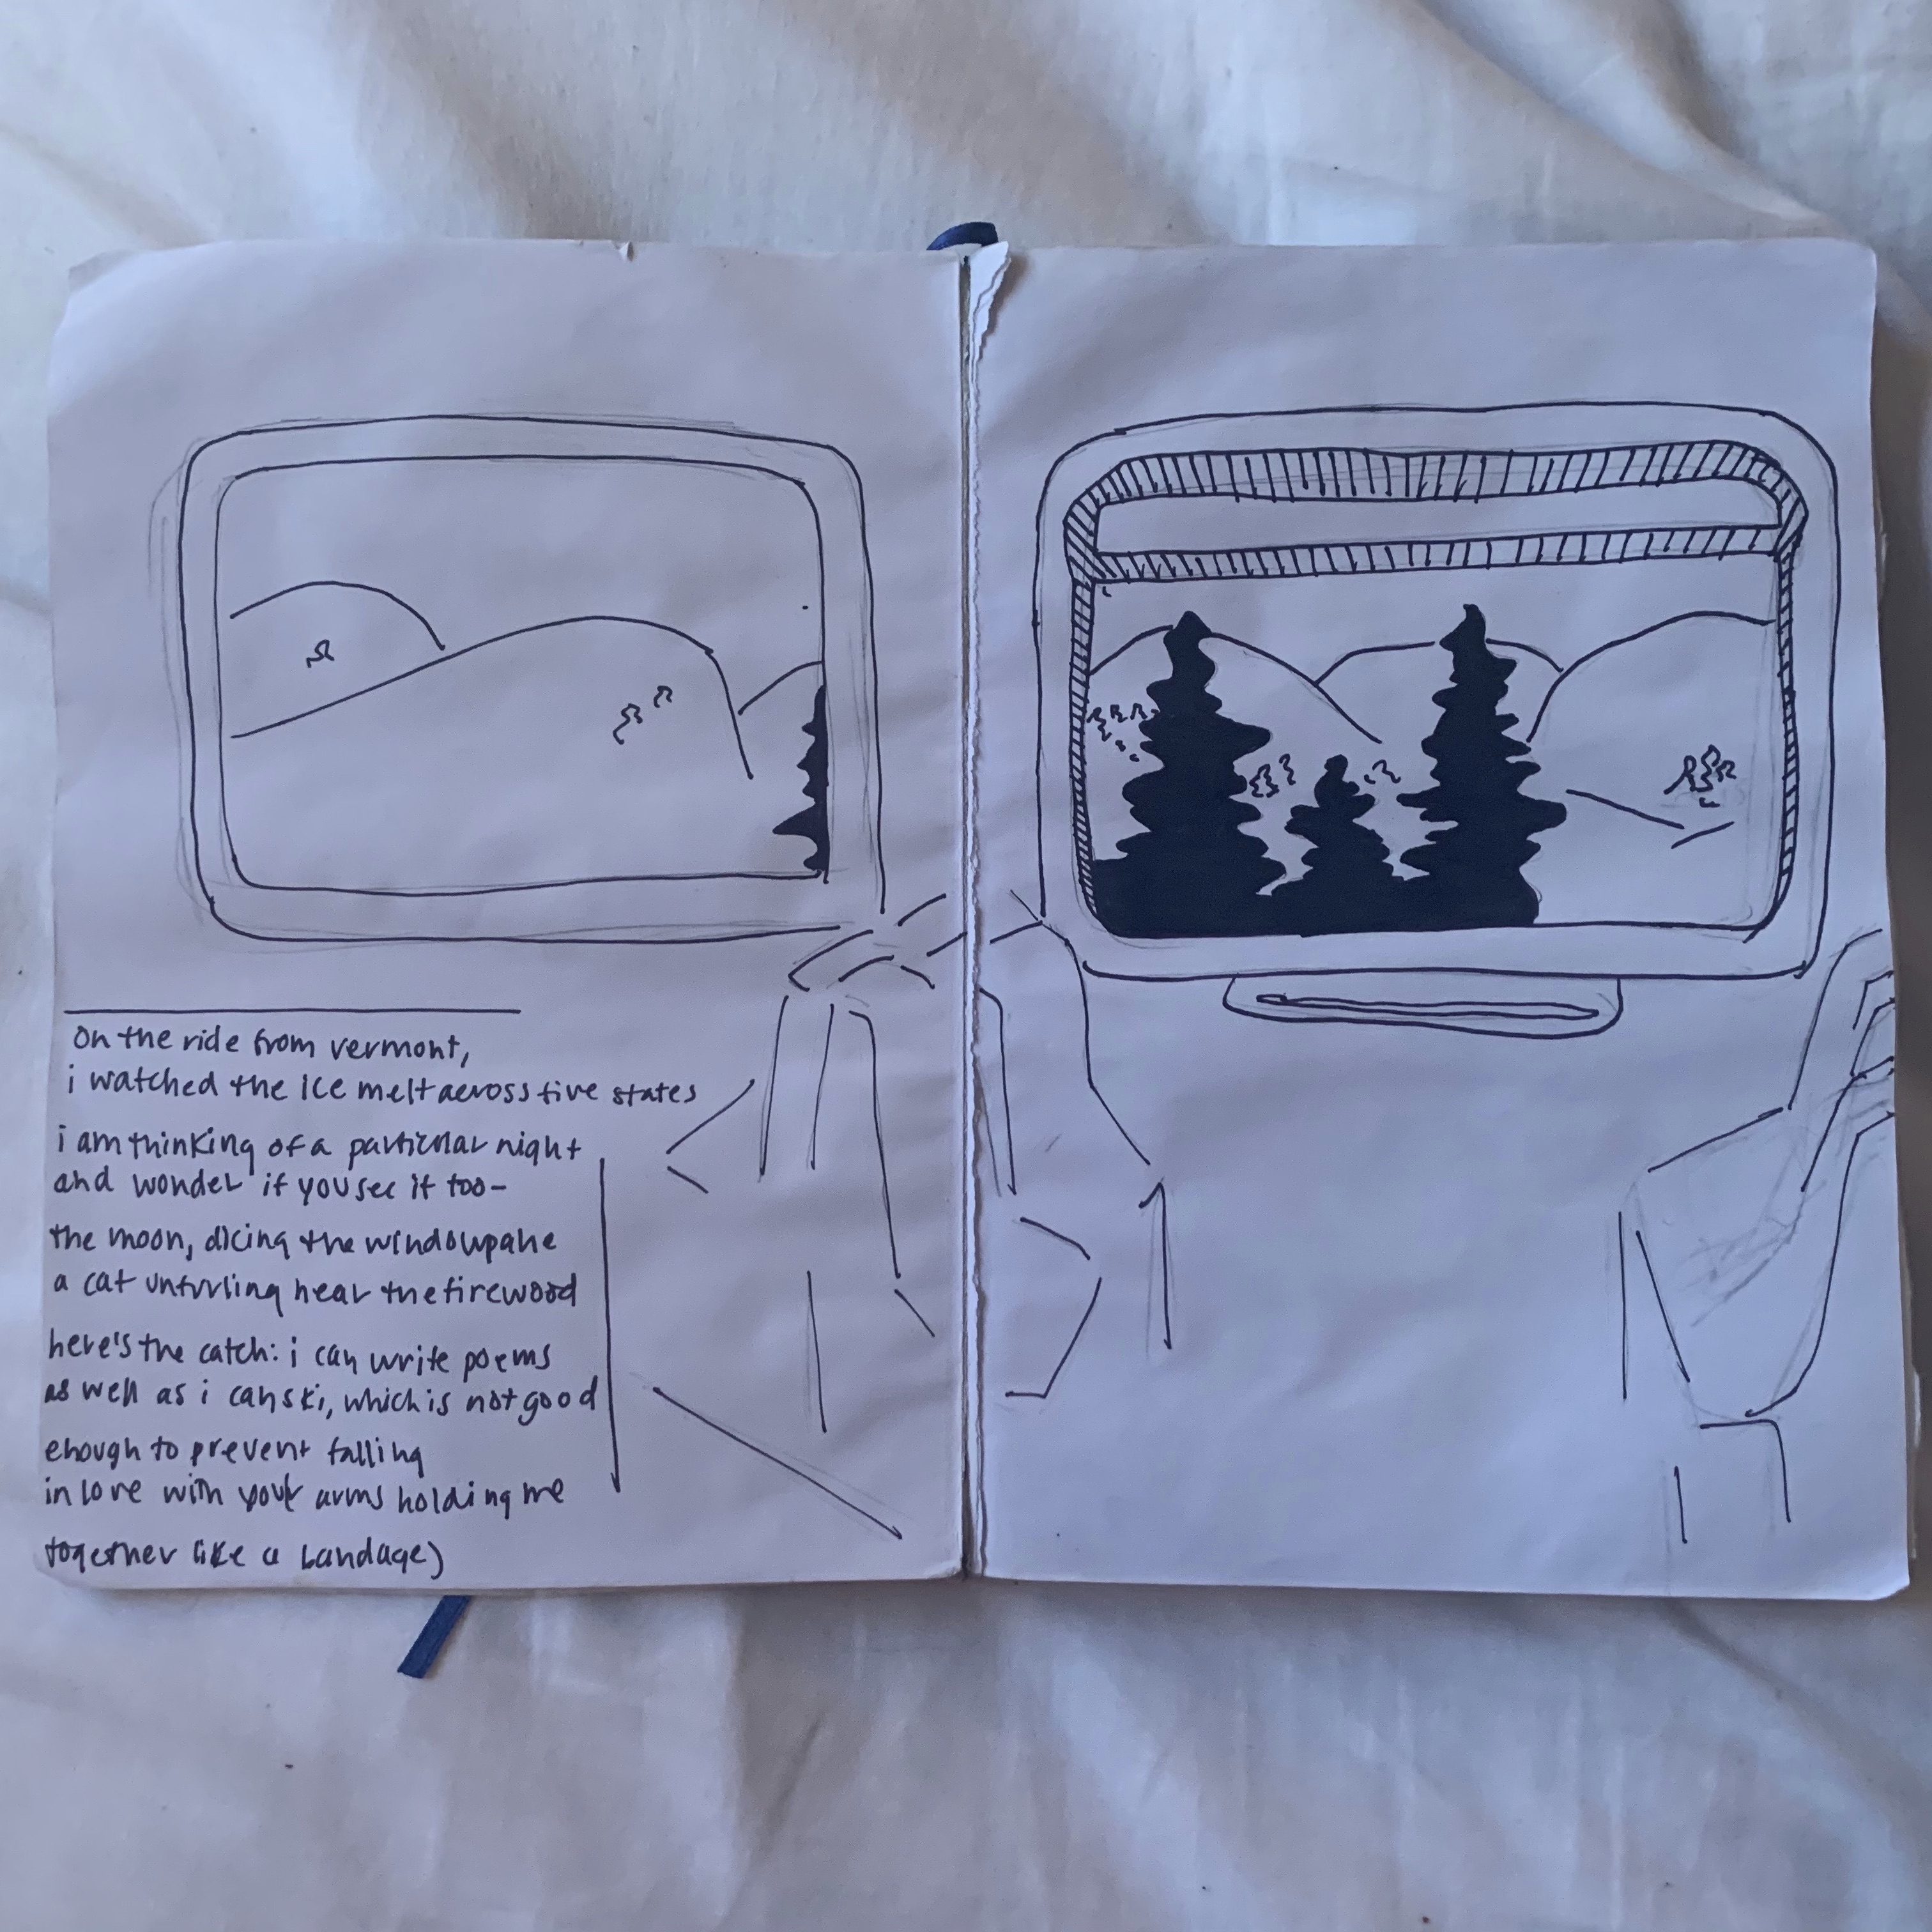 on the ride from vermont,
i watched the ice melt across five states
i am thinking of a particular night
and wonder if you see it too-
the moon, dicing the windowpane
a cat unfurling near the firewood
here's the catch: i can write poems
as well as i can ski, which is not good
enough to prevent falling
in love with your arms holding me
together like a bandage)